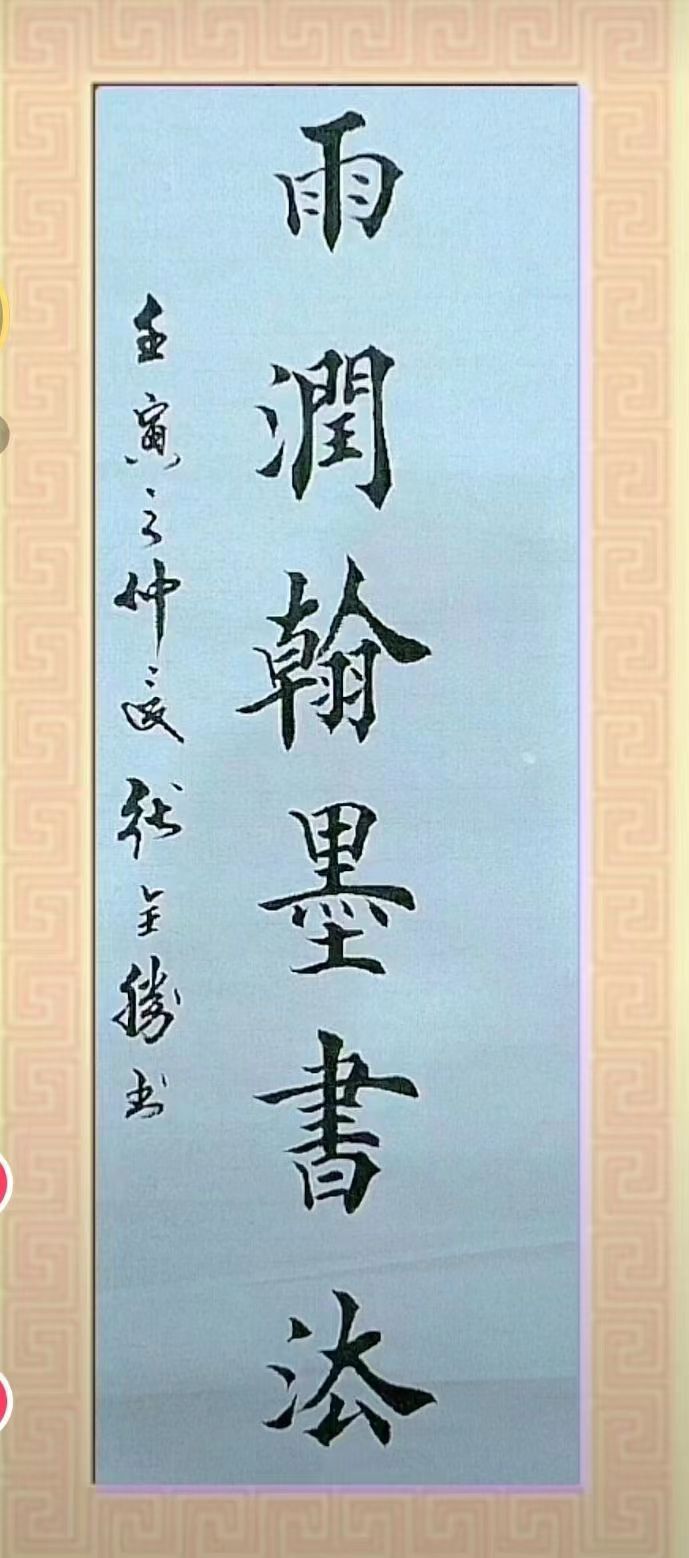 雨潤翰墨書法
壬寅之仲夏張金勝書